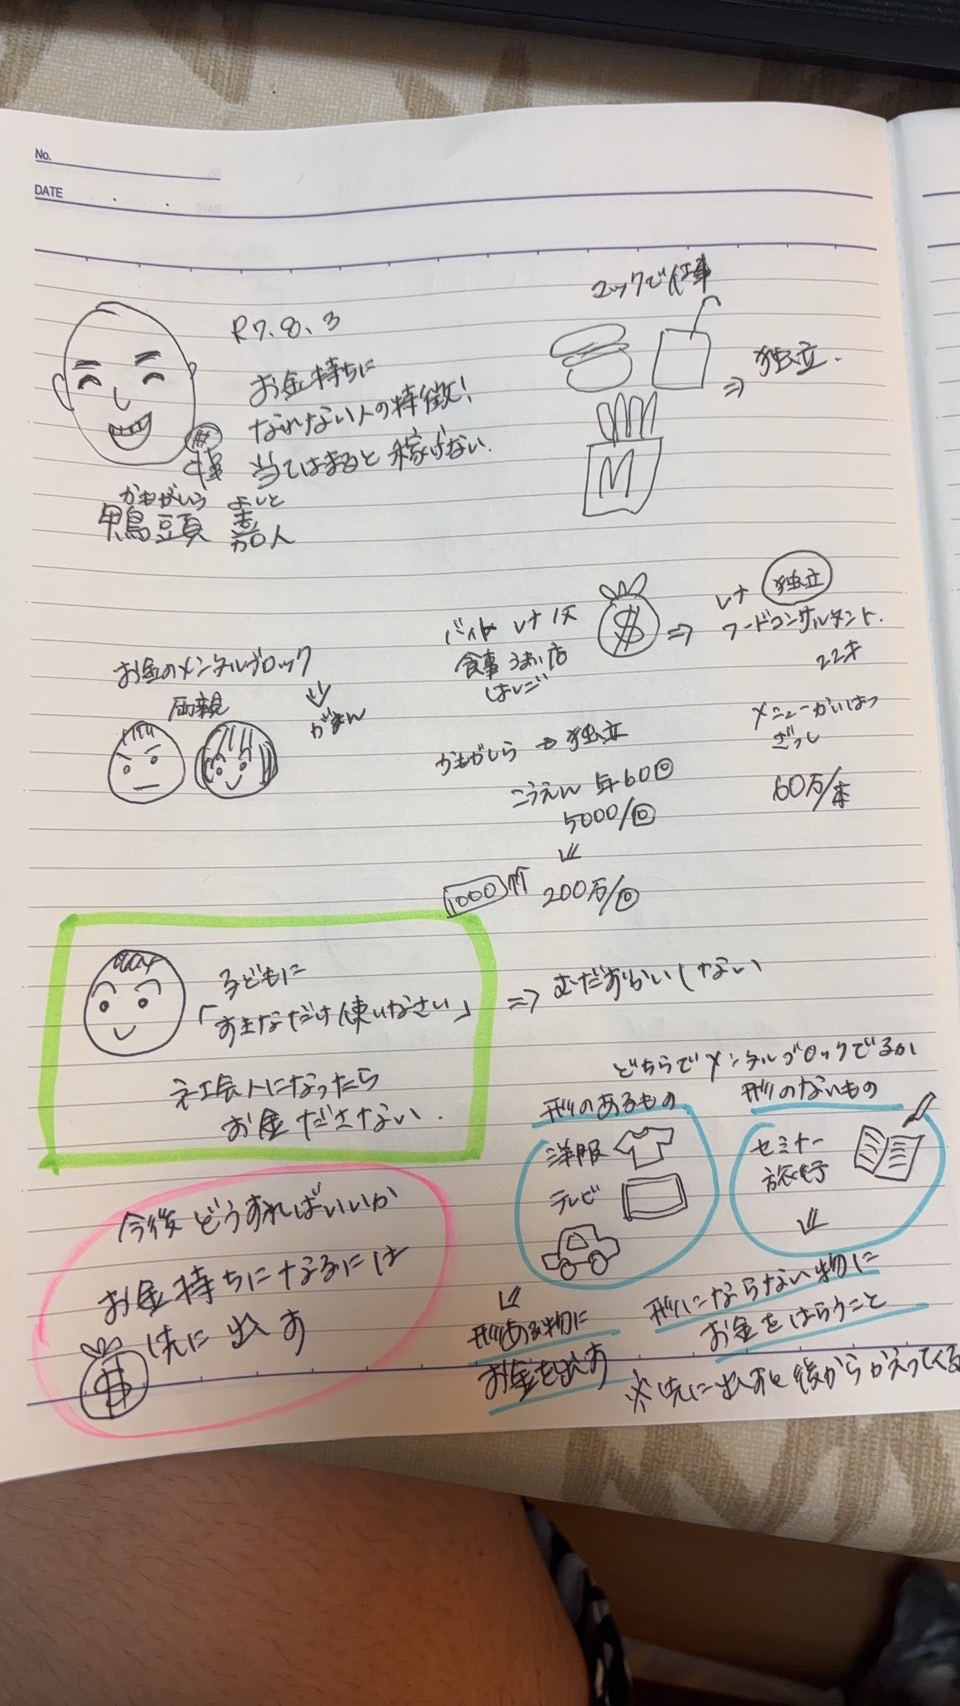 No.
DATE
R7.8.3
お金持ちに
なれない人の特徴!
当てはまると稼げない.
かもがしら よしと
鴨頭 嘉人
マックで仕事
M
⇒ 独立.
お金のメンタルブロック
両親
がまん
バイト レナ
食事 うまい店
はしご
$ ⇒
レナ 独立
フードコンサルタント.
22才
メニューかいはつ
ざっし
60万/本
かもがしら → 独立
こうえん 年60回
5000/回
↓
200万/回
1000
子どもに
「すきなだけ使いなさい」
⇒ むだづかいしない
社会人になったら
お金ださない.
どちらでメンタルブロックでるか
形のあるもの
洋服
テレビ
形のないもの
セミナー
旅行
形ある物に
お金を出す
形にならない物に
お金をはらうこと
※先に出すと後からかえってくる
今後どうすればいいか
お金持ちになるには
先に出す
$